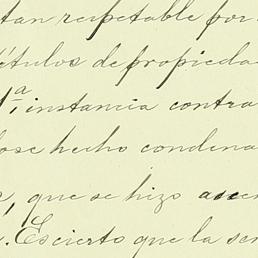 tan respetable por
títulos de propieda
1ª instancia contra
dose hecho condena
, que se hizo ascen
. Es cierto que la sen